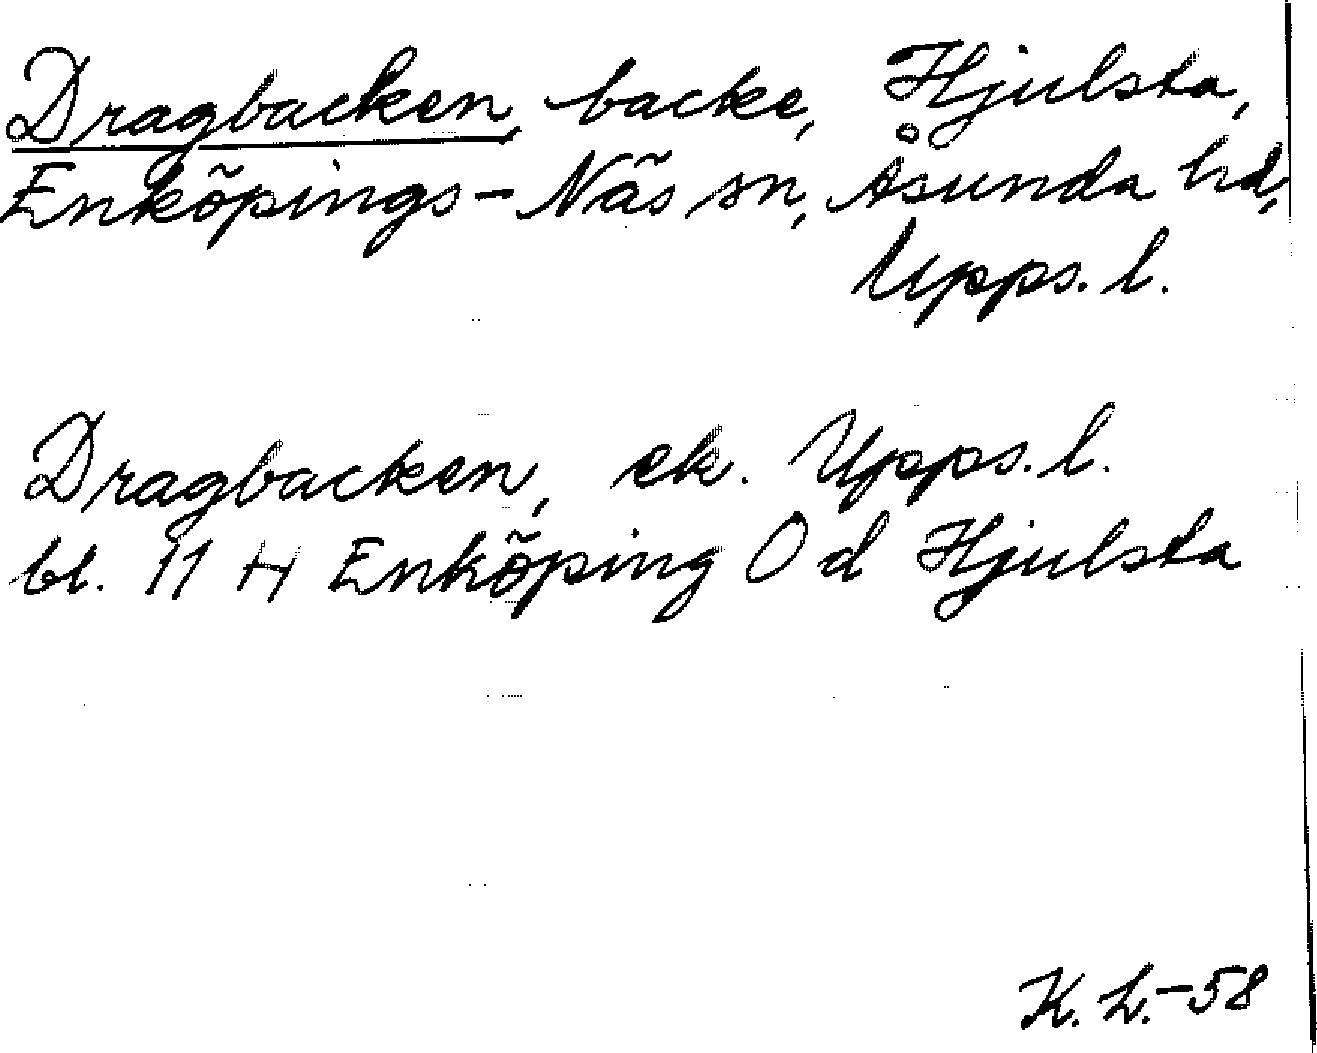 Dragbacken, backe, Hjulsta,
Enköpings-Näs sn, Åsunda hd,
Upps. l.
Dragbacken, ek. Upps. l.
bl. 11 H Enköping O d Hjulsta
K. L.-58